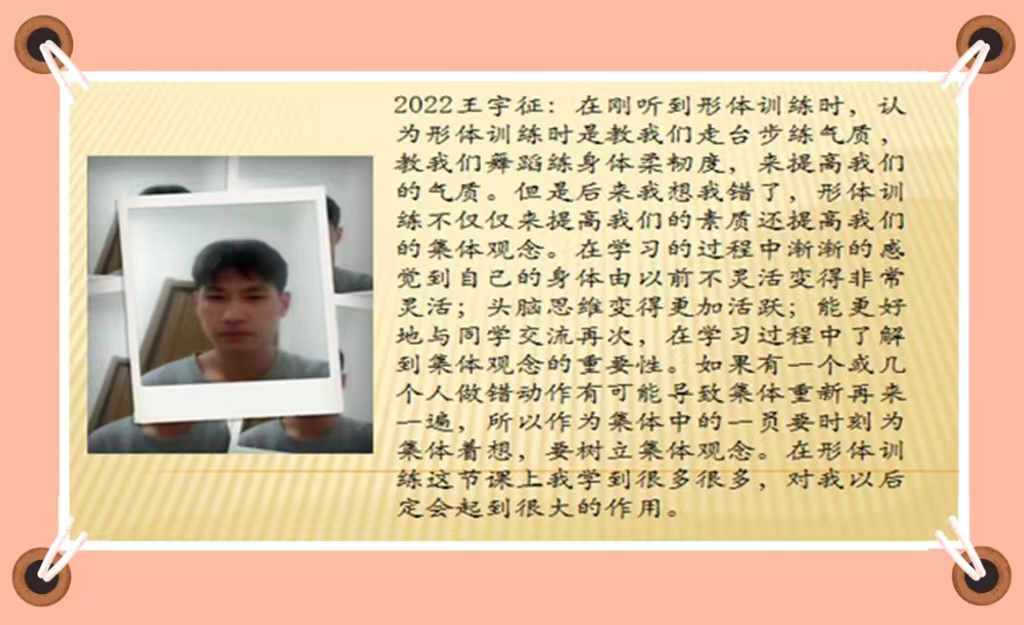 2022王宇征：在刚听到形体训练时，认
为形体训练时是教我们走台步练气质，
教我们舞蹈练身体柔韧度，来提高我们
的气质。但是后来我想我错了，形体训
练不仅仅来提高我们的素质还提高我们
的集体观念。在学习的过程中渐渐的感
觉到自己的身体由以前不灵活变得非常
灵活；头脑思维变得更加活跃；能更好
地与同学交流再次，在学习过程中了解
到集体观念的重要性。如果有一个或几
个人做错动作有可能导致集体重新再来
一遍，所以作为集体中的一员要时刻为
集体着想，要树立集体观念。在形体训
练这节课上我学到很多很多，对我以后
定会起到很大的作用。